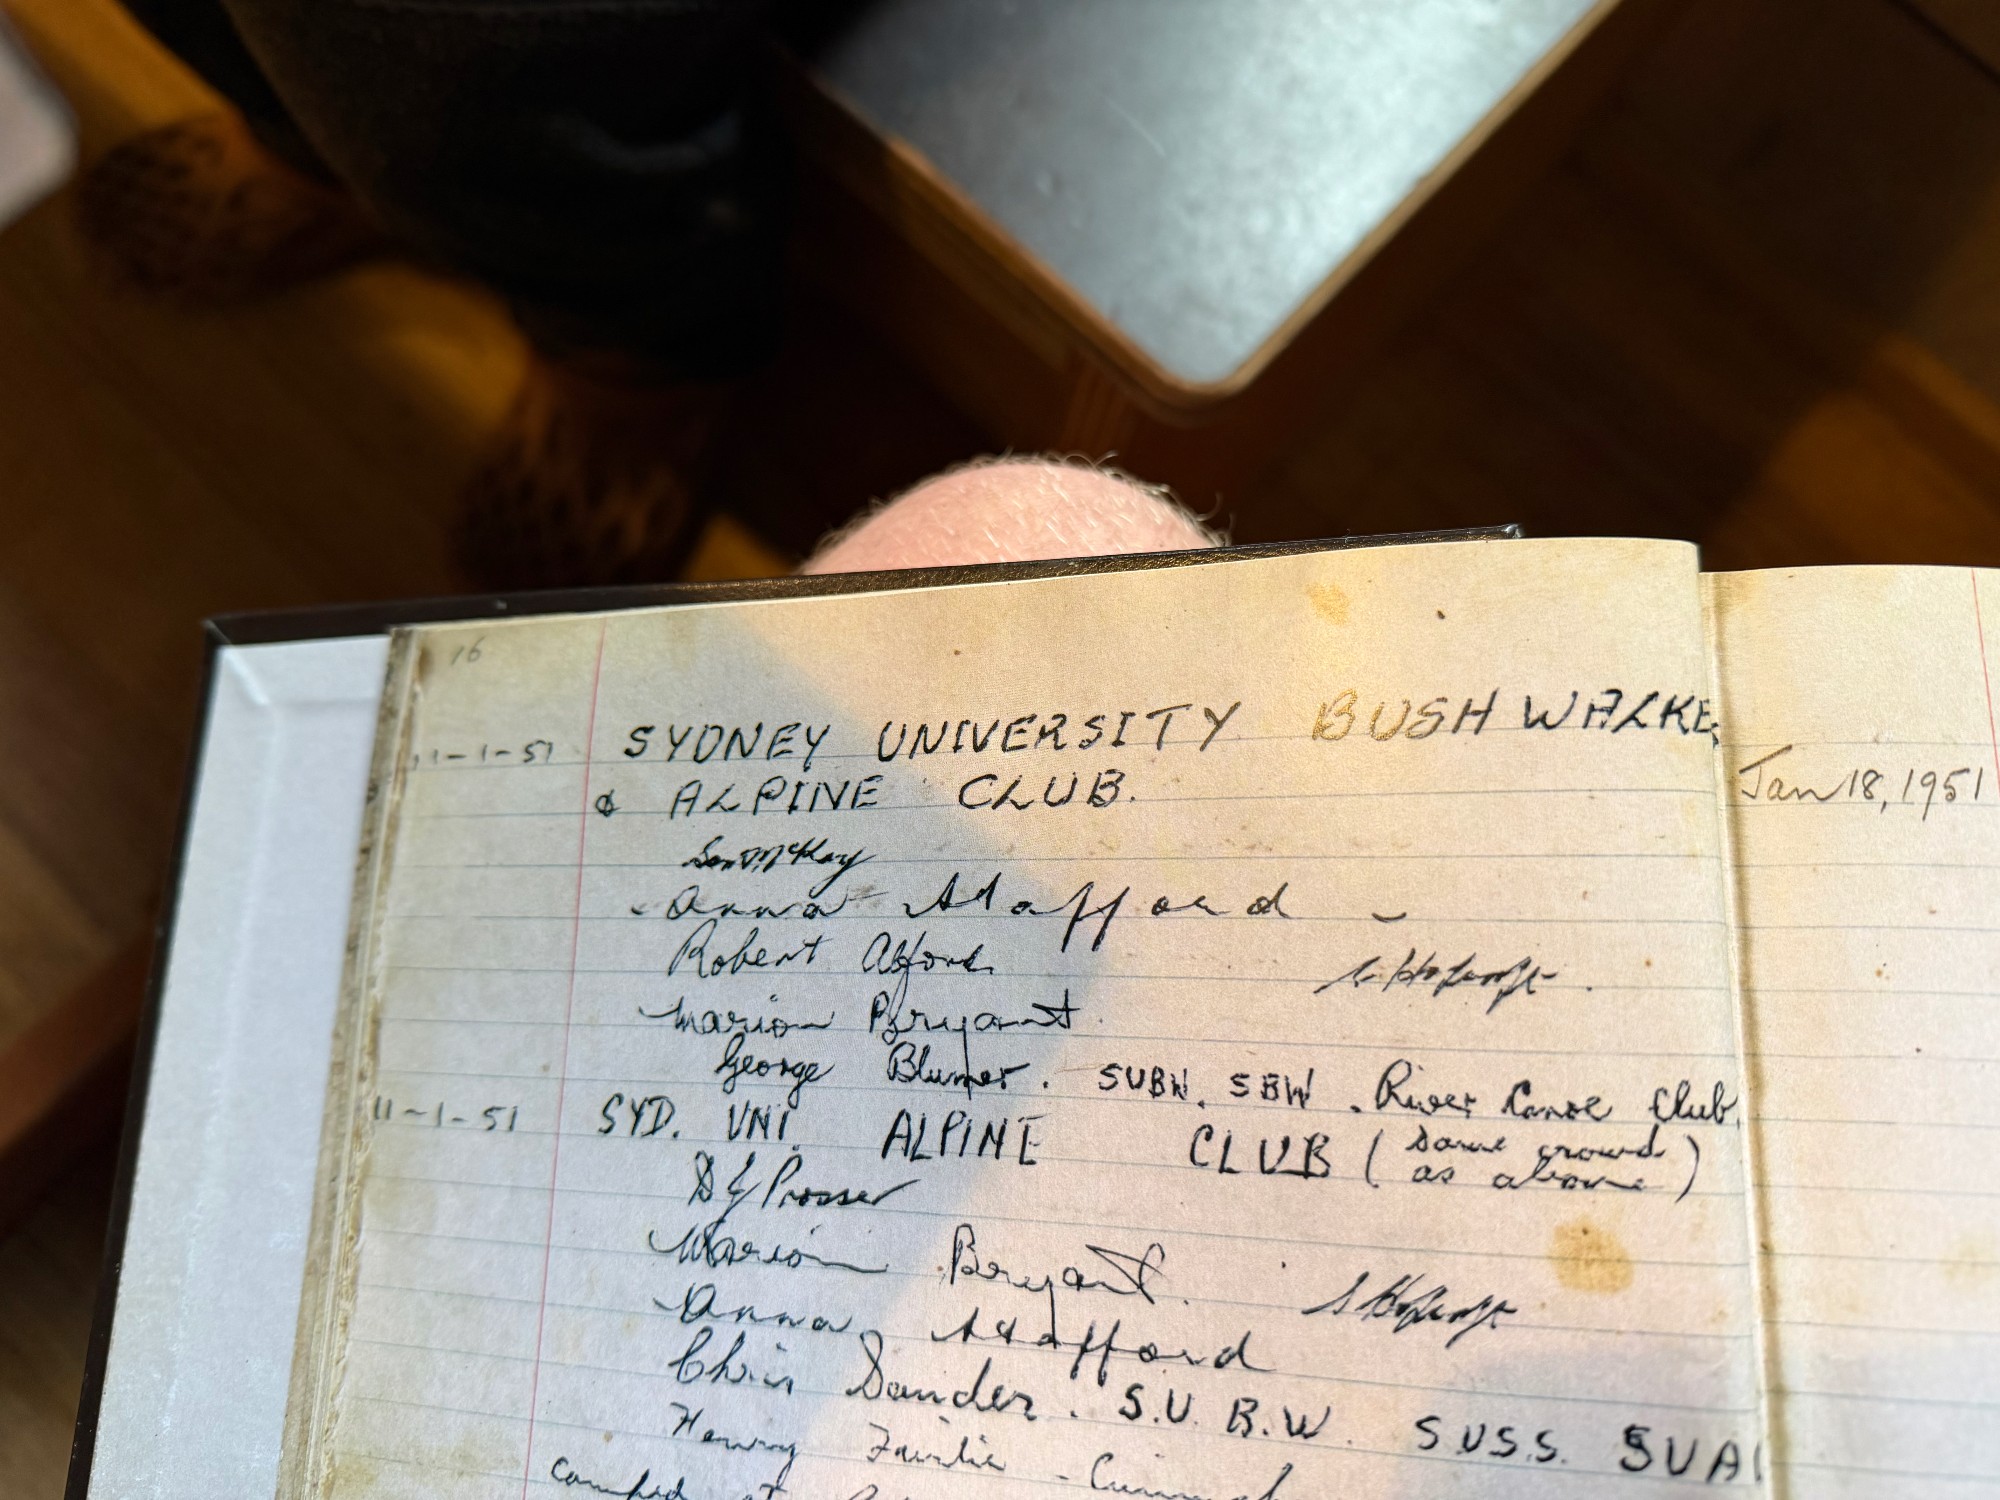 16
11-1-51 SYDNEY UNIVERSITY BUSH WALKE
& ALPINE CLUB.
McKay
Anna Stafford
Robert Alford
Marion Bryant.
George Blumer. SUBW. SBW. River Canoe Club.
11-1-51 SYD. UNI. ALPINE CLUB (same crowd
as above)
Prosser
Marion Bryant.
Anna Stafford
Chris Sander. S.U.B.W. S.U.S.S. SUA
Henry Fairlie -
camped at
Jan 18, 1951